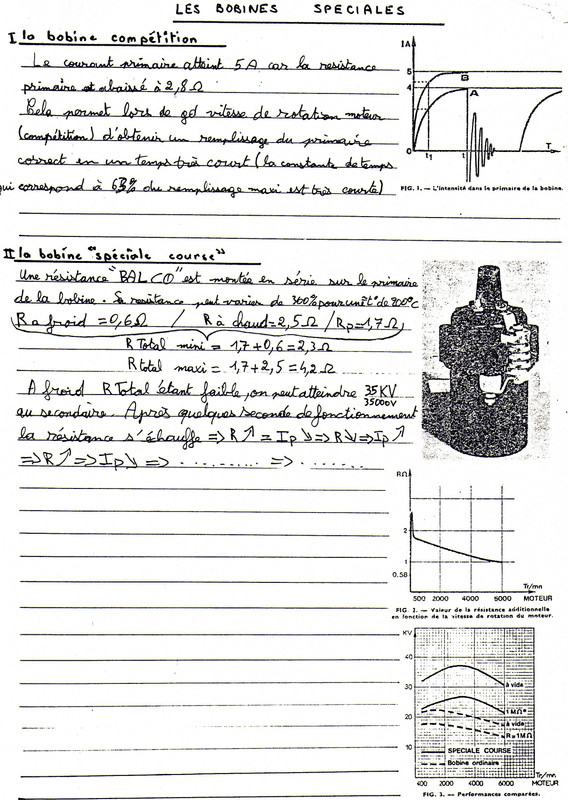 LES BOBINES SPECIALES
I la bobine compétition
Le courant primaire atteint 5A car la resistance
primaire est abaissé à 2,8 Ω
Cela permet lors de gd vitesse de rotation moteur
(compétition) d'obtenir un remplissage du primaire
correct en un temps très court (la constante de temps
qui correspond à 63% du remplissage maxi est très courte)
IA
5
4
2
0
B
A
t1
t
T
FIG. 1. — L'intensité dans le primaire de la bobine.
II la bobine "spéciale course"
Une résistance "BALCO" est montée en série sur le primaire
de la bobine. Sa resistance peut varier de 300% pour un t° de 200°C
R a froid = 0,6 Ω / R à chaud = 2,5 Ω / Rp = 1,7 Ω
R Total mini = 1,7 + 0,6 = 2,3 Ω
R total maxi = 1,7 + 2,5 = 4,2 Ω
A froid R Total étant faible, on peut atteindre 35 KV
35000V
au secondaire. Apres quelques seconde de fonctionnement
la résistance s'échauffe => R ↗ = Ip ↘ => R ↘ => Ip ↗
=> R ↗ => Ip ↘ => ........... => ........
RΩ
2
1
0.58
500 2000 4000 6000
Tr/mn
MOTEUR
FIG. 2. — Valeur de la résistance additionnelle
en fonction de la vitesse de rotation du moteur.
KV
40
30
20
10
à vide
1 MΩ
à vide
R = 1MΩ
SPECIALE COURSE
Bobine ordinaire
400 2000 4000 6000
Tr/mn
MOTEUR
FIG. 3. — Performances comparées.